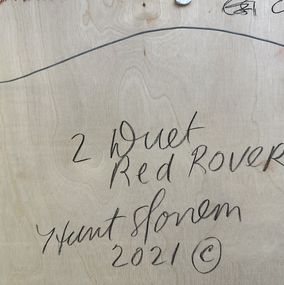 2 Duet
Red Rover
Hunt Slonem
2021 ©